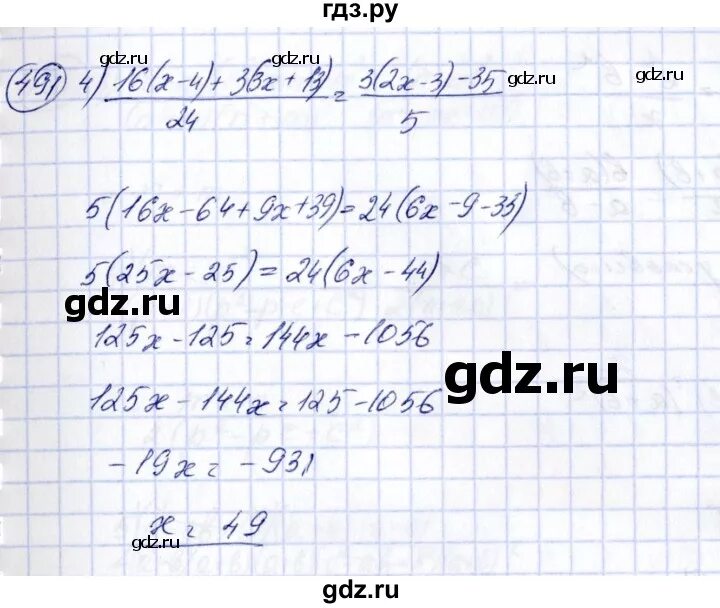 гдз.ру
491 4) (16(x-4) + 3(3x + 13))/24 = (3(2x-3) - 35)/5
5(16x - 64 + 9x + 39) = 24(6x - 9 - 35)
5(25x - 25) = 24(6x - 44)
125x - 125 = 144x - 1056
125x - 144x = 125 - 1056
-19x = -931
x = 49
gdz.ru
gdz.ru
gdz.ru
gdz.ru
gdz.ru
gdz.ru
gdz.ru
gdz.ru
gdz.ru